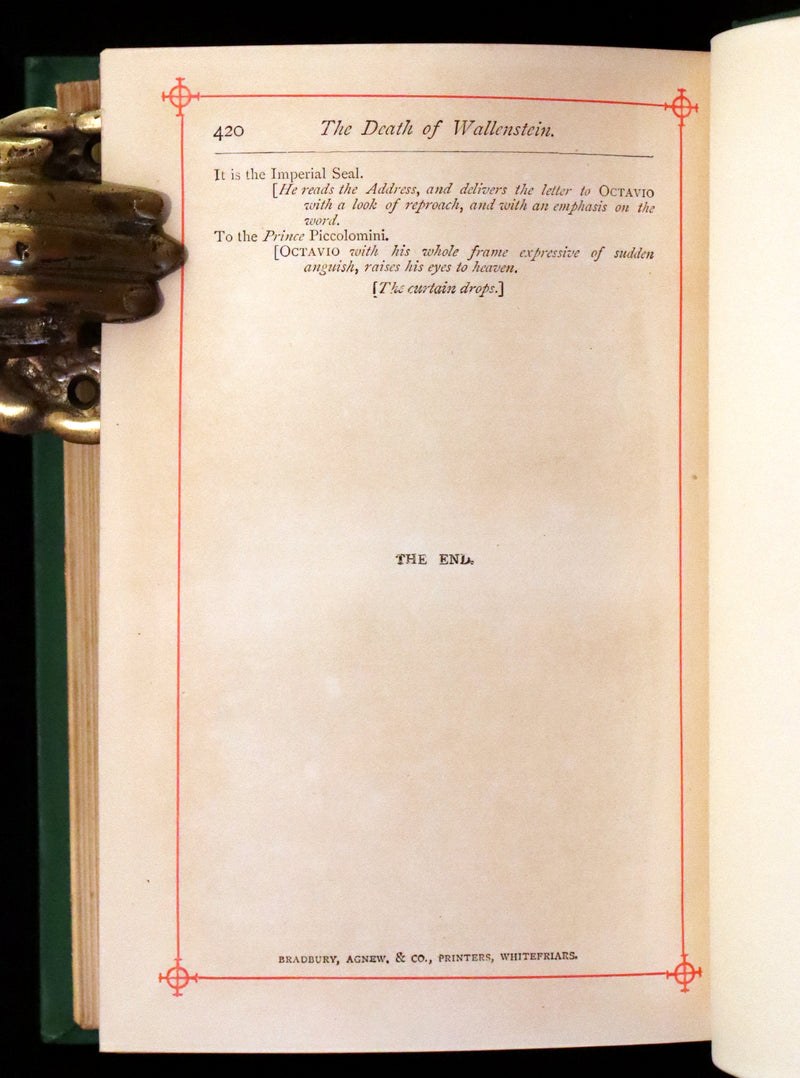 420 The Death of Wallenstein.
It is the Imperial Seal.
[He reads the Address, and delivers the letter to OCTAVIO
with a look of reproach, and with an emphasis on the
word.
To the Prince Piccolomini.
[OCTAVIO with his whole frame expressive of sudden
anguish, raises his eyes to heaven.
[The curtain drops.]
THE END.
BRADBURY, AGNEW, & CO., PRINTERS, WHITEFRIARS.